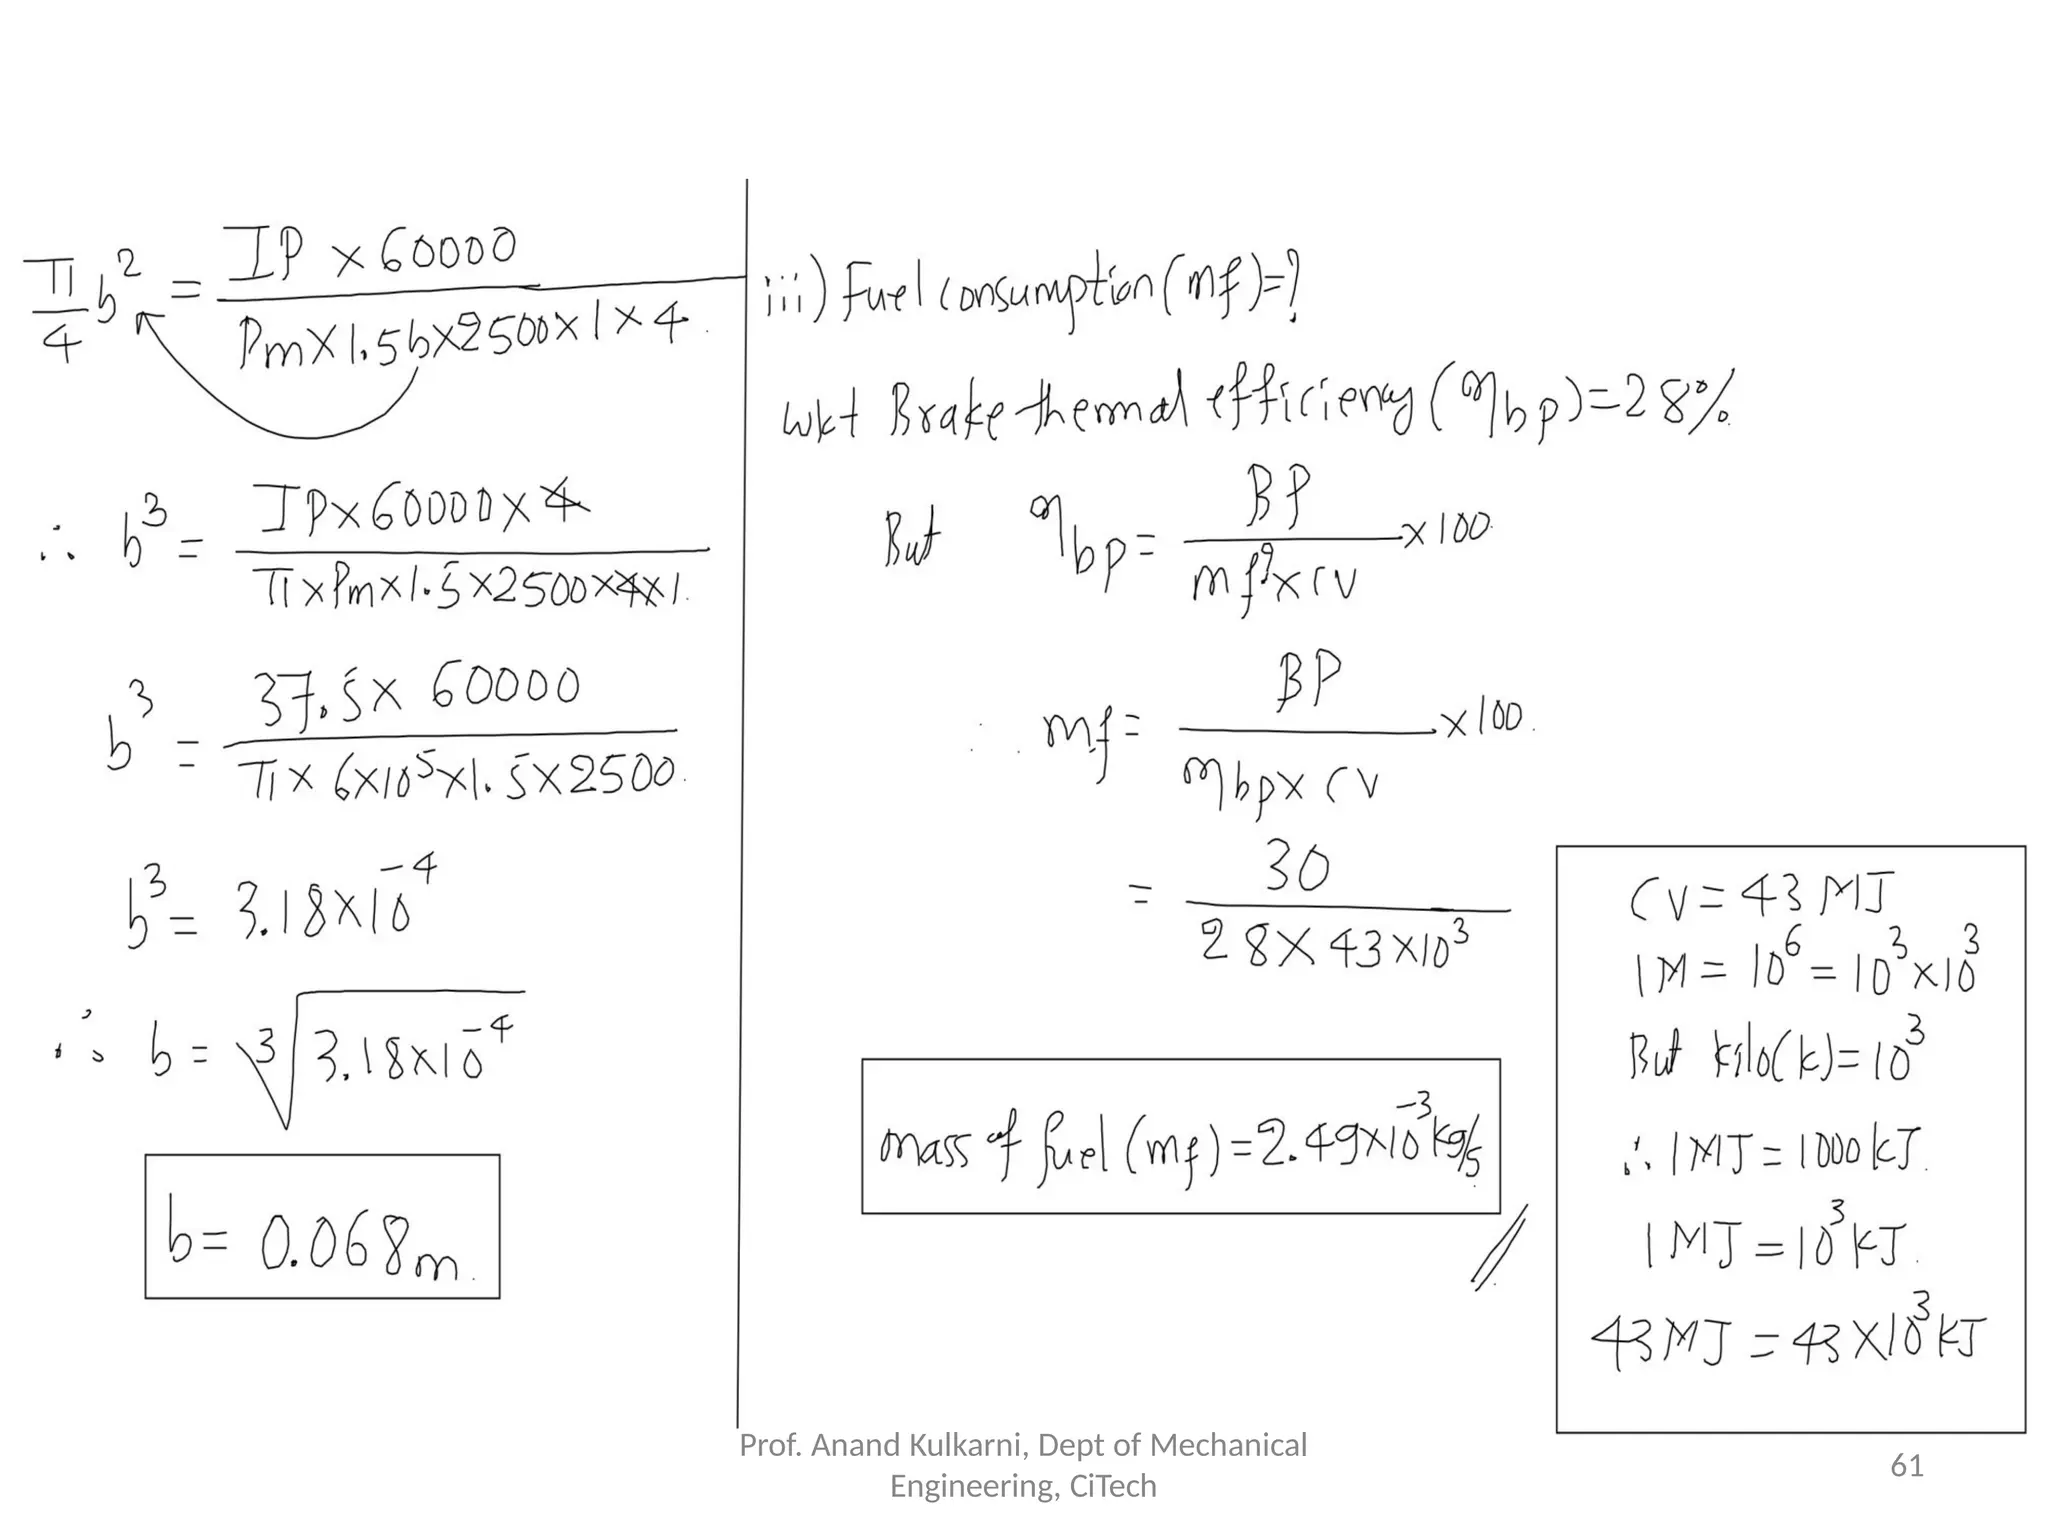 π/4 b² = IP × 60000 / Pm×1.5b×2500×1×4
∴ b³ = IP×60000×4 / π×Pm×1.5×2500×4×1
b³ = 37.5× 60000 / π× 6×10⁵×1.5×2500
b³ = 3.18×10⁻⁴
∴ b = ∛3.18×10⁻⁴
b= 0.068m
iii) Fuel consumption (mf)=?
Wkt Brake thermal efficiency (ηbp)=28%
But ηbp = BP / mf×CV ×100
∴ mf = BP / ηbp× CV ×100
= 30 / 28×43×10³
mass of fuel (mf)=2.49×10⁻³kg/s
CV = 43 MJ
1M = 10⁶ = 10³×10³
But kilo(k)=10³
∴ 1MJ = 1000kJ
1MJ = 10³kJ
43MJ = 43×10³kJ
Prof. Anand Kulkarni, Dept of Mechanical
Engineering, CiTech
61